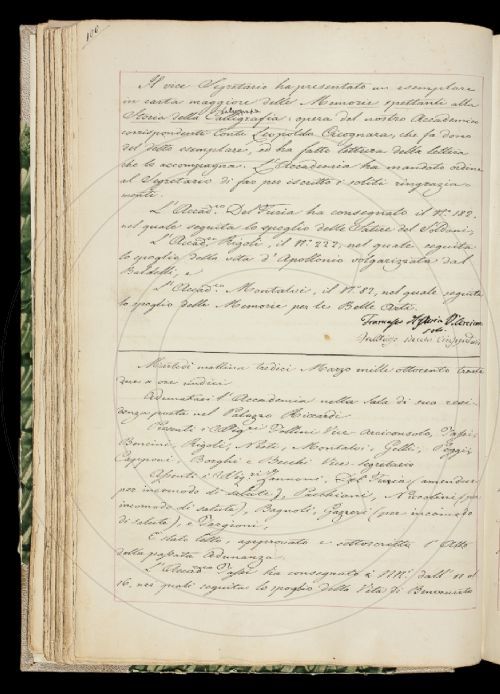 106
Il vice Segretario ha presentato un esemplare
in carta maggiore delle Memorie spettanti alla
Storia della Calcografia, opera del nostro Accademico
corrispondente Conte Leopoldo Cicognara, che fa dono
del detto esemplare, ed ha fatto lettura della lettera
che lo accompagna. L'Accademia ha mandato ordine
al Segretario di far per iscritto i soliti ringrazia-
menti.
L'Accad.co Del Furia ha consegnato il N.° 182,
nel quale seguita lo spoglio delle Satire del Soldani,
L'Accad.co Rigoli, il N.° 222, nel quale seguita
lo spoglio della vita d'Apollonio volgarizzata dal
Baldelli, e
L'Accad.co Montalvi, il N.° 82, nel quale seguita
lo spoglio delle Memorie per le Belle Arti.
Martedì mattina tredici Marzo mille ottocento trenta
due a ore undici
Adunatasi l'Accademia nella Sala di sua resi-
denza posta nel Palazzo Riccardi
Presenti i Sigg.ri Follini Vice Arciconsolo, Tassi,
Bencini, Rigoli, Nesti, Montalvi, Gelli, Poggi,
Capponi, Borghi e Becchi Vice-Segretario
Assenti i Sigg.ri Zannoni, Del Furia (amendue
per incomodo di salute), Niccolini (per
incomodo di salute), Bagnoli, Gazzeri (per incomodo
di salute), e Targioni.
È stato letto, approvato e sottoscritto l'Atto
della passata Adunanza.
L'Accad.co Tassi ha consegnato i N.i dall' 11 al
16, nei quali seguita lo spoglio della Vita di Benvenuto